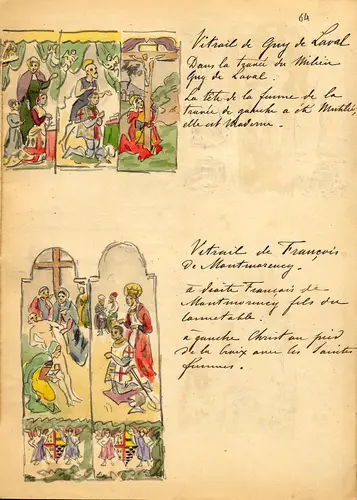 64
Vitrail de Guy de Laval
Dans la travée du Milieu
Guy de Laval.
La tête de la femme de la
travée de gauche a été Mutilée,
elle est Moderne.
Vitrail de François
de Montmorency.
à droite François de
Montmorency fils du
connetable.
à gauche Christ au pied
de la Croix avec les Saintes
femmes.